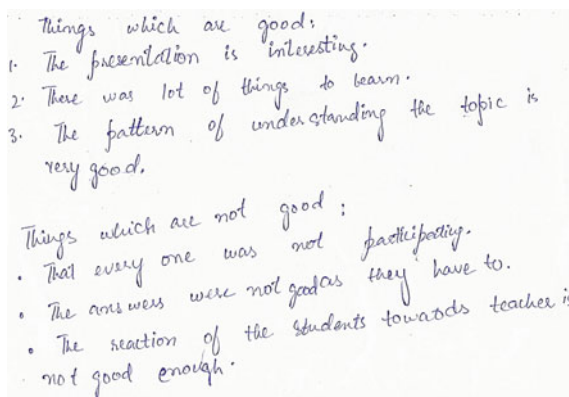 Things which are good:
1. The presentation is interesting.
2. There was lot of things to learn.
3. The pattern of understanding the topic is
very good.
Things which are not good:
• That every one was not participating.
• The answers were not good as they have to.
• The reaction of the students towards teacher is
not good enough.